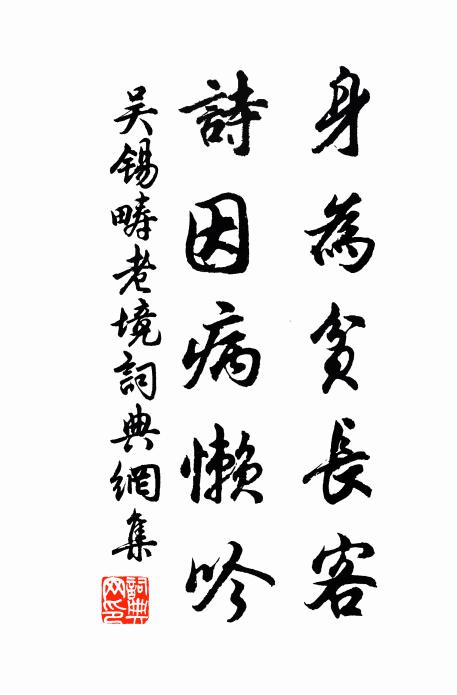 身為貧長客
詩因病懶吟
吴錫疇老境詞典網集
詞典網印